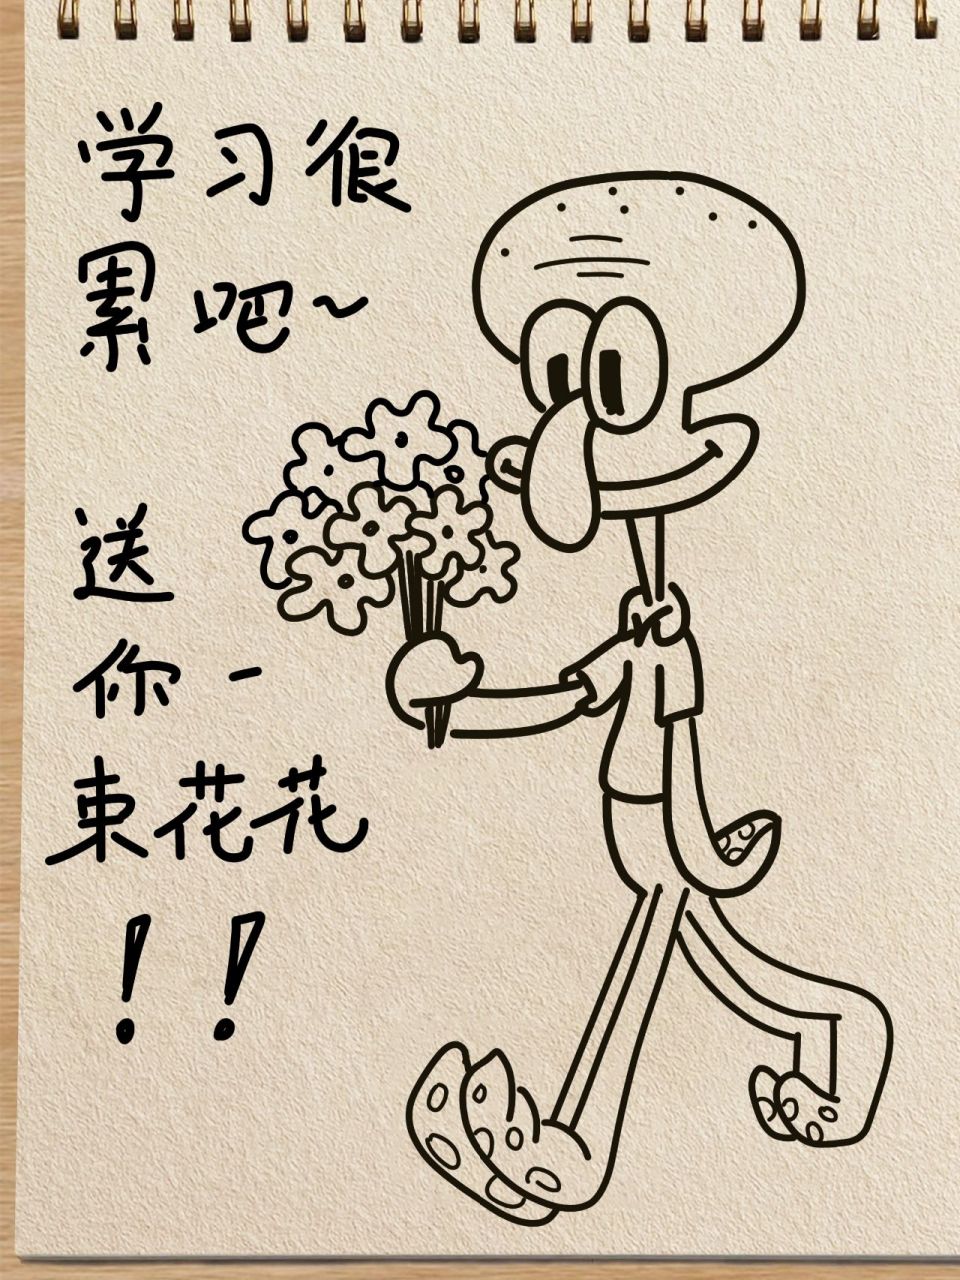 学习很
累吧~
送
你一
束花花
！！